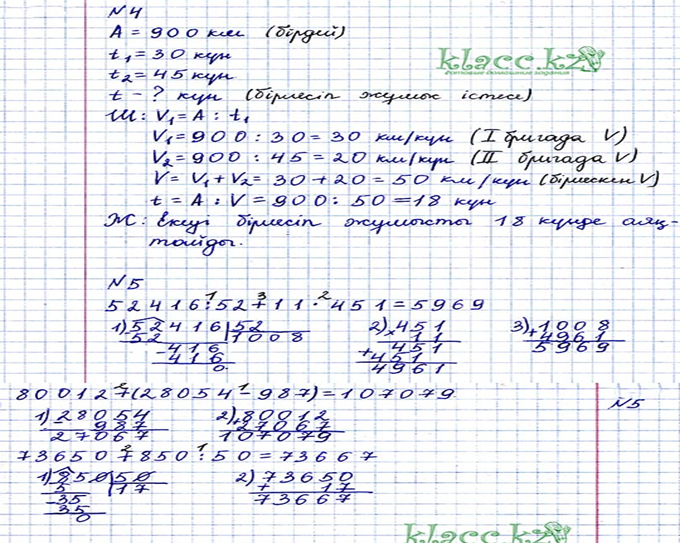 N4
A = 900 км (бірдей)
klacc.kz
готовые домашние задания
t₁ = 30 күн
t₂ = 45 күн
t - ? күн (бірлесіп жұмыс істесе)
Ш: V₁ = A : t₁
V₁ = 900 : 30 = 30 км/күн (I бригада V)
V₂ = 900 : 45 = 20 км/күн (II бригада V)
V = V₁ + V₂ = 30 + 20 = 50 км/күн (бірлескен V)
t = A : V = 900 : 50 = 18 күн
Ж: Екеуі бірлесіп жұмысты 18 күнде аяқ-
тайды.
N5
1 3 2
52416 : 52 + 11 · 451 = 5969
1) 52416 | 52 2) 451 3) 1008
- 52 | 1008 × 11 + 4961
- 416 451 5969
416 + 451
0 4961
2 1
80012 + (28054 - 987) = 107079
N5
1) 28054 2) 80012
- 987 + 27067
27067 107079
2 1
73650 + 850 : 50 = 73667
1) 850 | 50 2) 73650
5 | 17 + 17
- 35 73667
35
0
klacc.kz